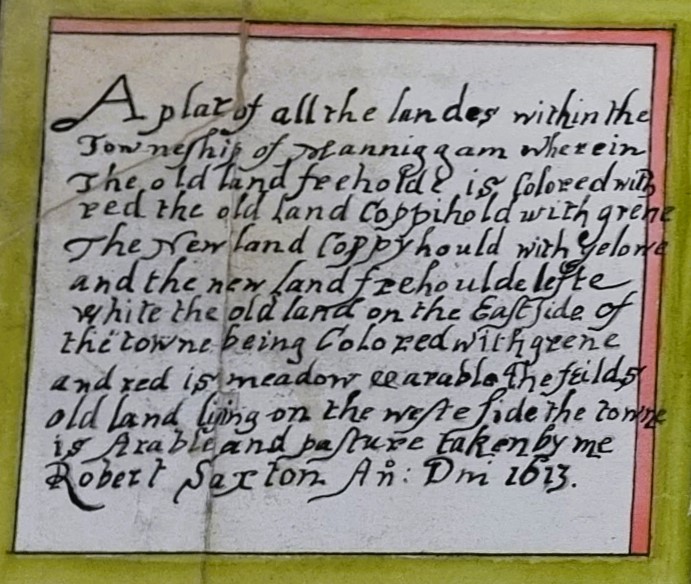 A plat of all the landes within the
Towneship of Manniggam wherein
The old land freholde is Colored with
red the old land Coppihold with grene
The New land Coppyhould with Yelowe
and the new land freehoulde lefte
white the old land on the East side of
the towne being Colored with grene
and red is meadow & arable The feilds
old land lying on the weste side the towne
is Arable and pasture taken by me
Robert Saxton An̄: Dni 1613.